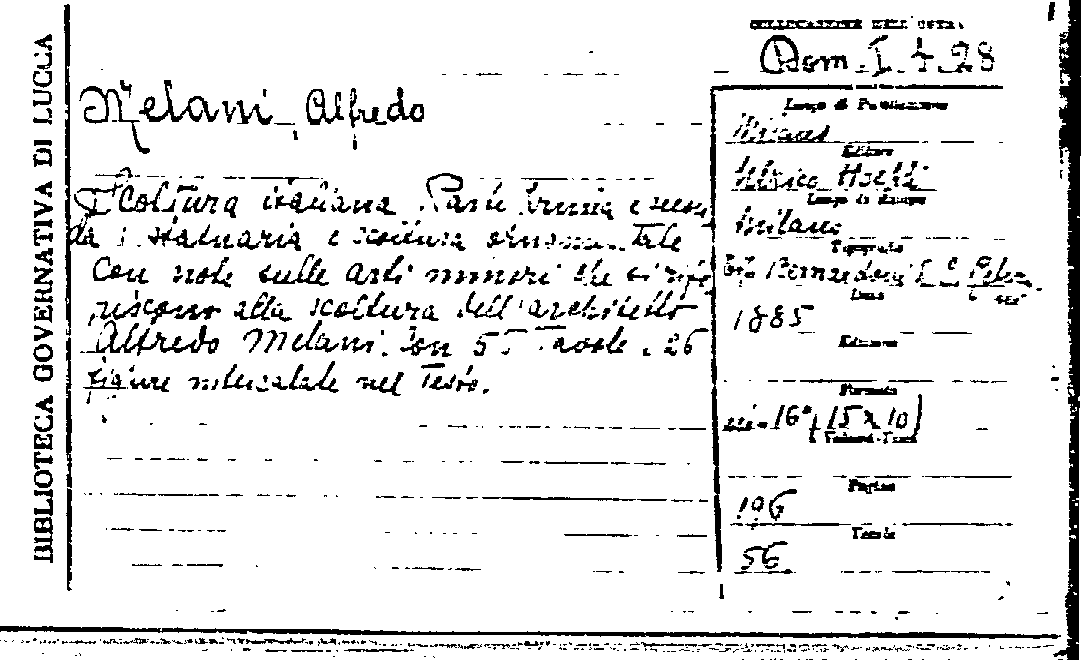 BIBLIOTECA GOVERNATIVA DI LUCCA
COLLOCAZIONE DELL'OPERA
Dom. I. 4. 28
Melani, Alfredo
Scoltura italiana. Parte prima e secon
da: statuaria e scoltura ornamentale
con note sulle arti minori che si rife
riscono alla scoltura dell'architetto
Alfredo Melani. Con 56 Tavole e 26
figure intercalate nel Testo.
Luogo di Pubblicazione
Milano
Editore
Ulrico Hoepli
Luogo di Stampa
Milano
Tipografo
Tip. Bernardoni
Anno
1885
Edizione
Formato
in-16° (15 x 10)
Volumi-Tomi
Pagine
196
Tavole
56